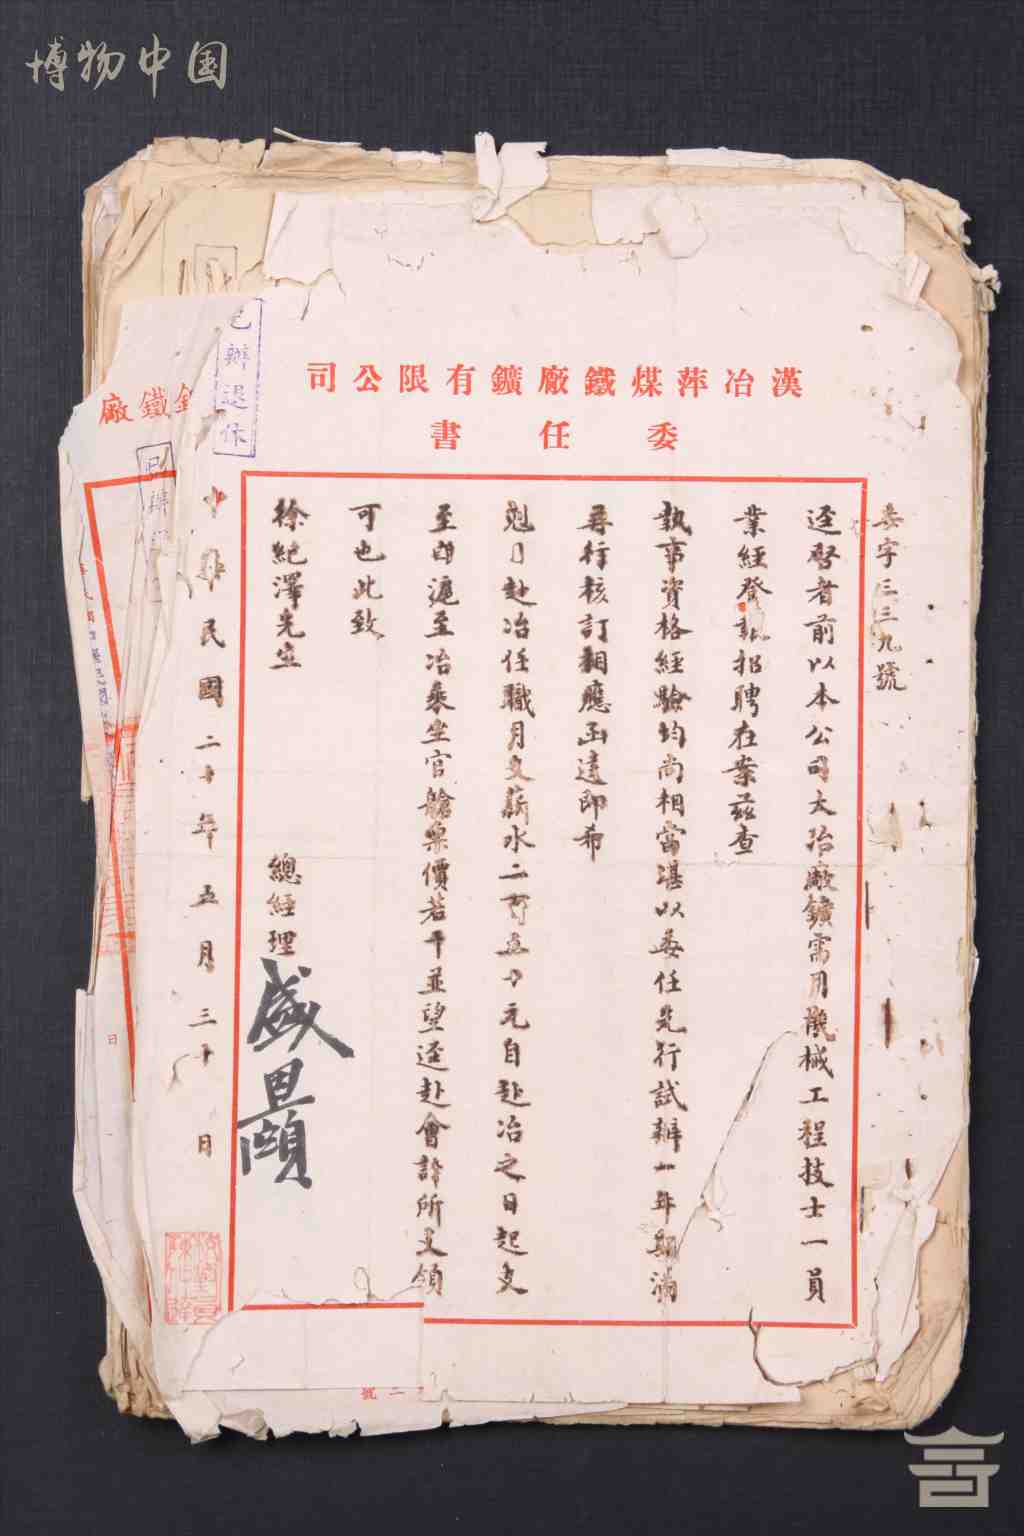 博物中国
漢冶萍煤鐵廠鑛有限公司
委任書
委字三三九號
逕啓者前以本公司大冶廠鑛需用機械工程技士一員
業經登報招聘在案茲查
執事資格經驗均尚相當堪以委任先行試辦一年期滿
再行核訂相應函達即希
尅日赴冶任職月支薪水二百五十元自赴冶之日起支
至由滬至冶乘坐官艙票價若干並望逕赴會計所支領
可也此致
徐紀澤先生
總經理
盛恩頤
中華民國二十年五月三十日
已辦退作
鐵廠
已辦
日
二號